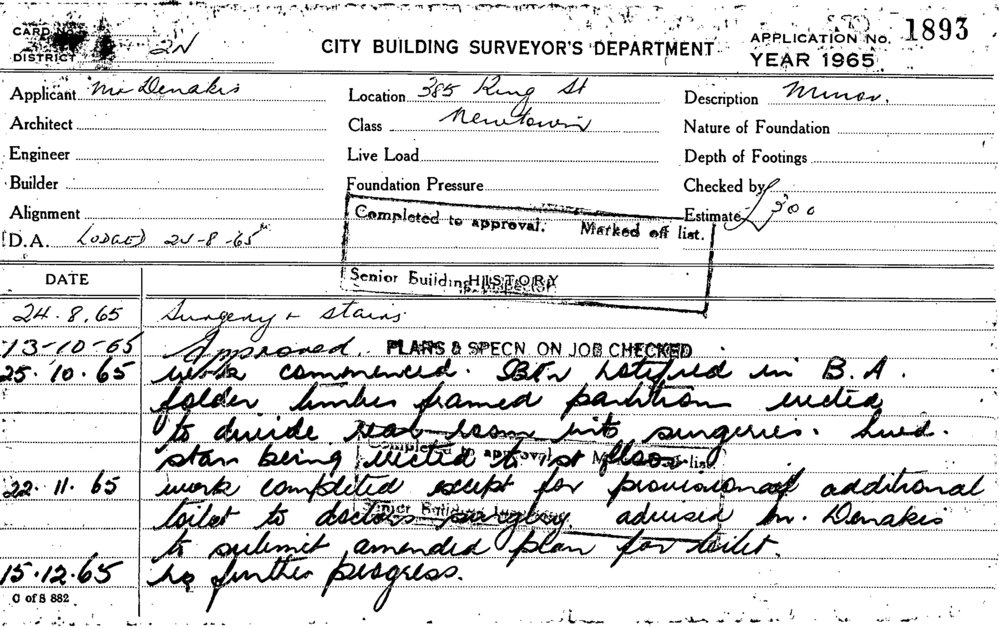 CARD No.
DISTRICT 2N
CITY BUILDING SURVEYOR'S DEPARTMENT
APPLICATION No. 1893
YEAR 1965
Applicant Mr Denakis
Location 385 King St
Description Minor.
Architect
Class Newtown
Nature of Foundation
Engineer
Live Load
Depth of Footings
Builder
Foundation Pressure
Checked by
Alignment
Completed to approval. Marked off list.
Estimate £300
D.A. LODGED 25-8-65
Senior Building Inspector
DATE
HISTORY
24.8.65 Surgery + stairs
13-10-65 Approved. PLANS & SPECN ON JOB CHECKED
25.10.65 work commenced. notified in B.A.
folder timber framed partition erected
to divide rear room into surgeries.
stair being erected to 1st floor
Completed to approval. Marked off list.
22.11.65 work completed except for provision of additional
toilet to doctors surgery advised Mr. Denakis
Senior Building Inspector
to submit amended plan for toilet.
15.12.65 no further progress.
C of S 882